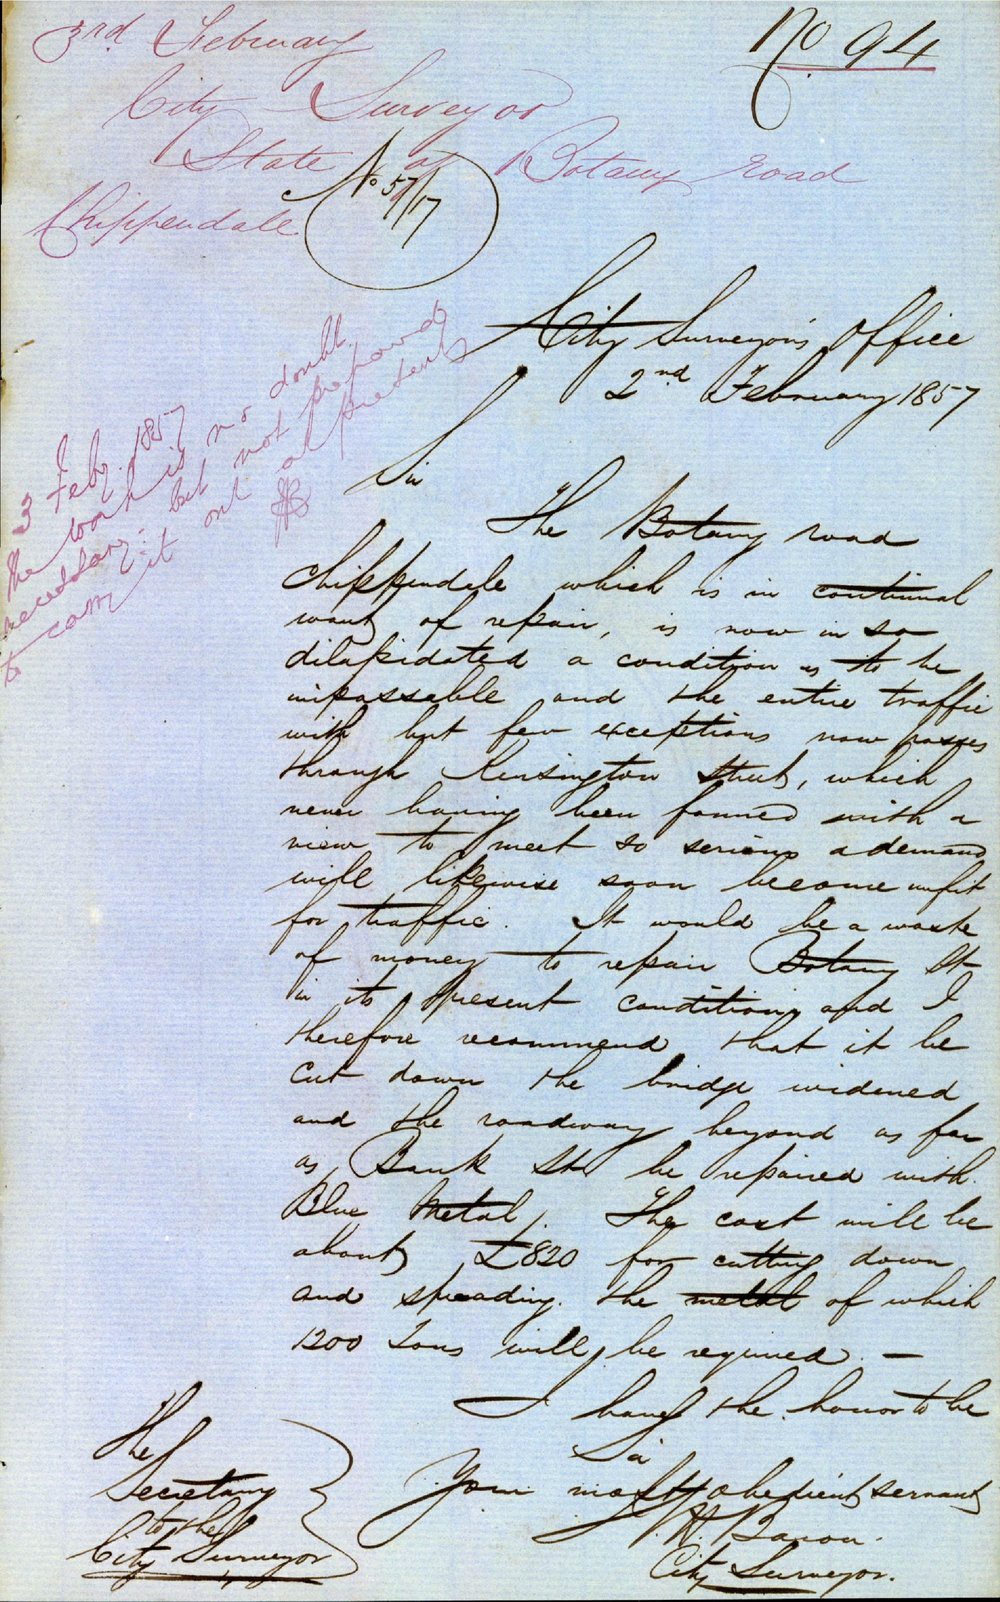 3rd February
No 94
City Surveyor
State of Botany road
Chippendale
No 57/17
City Surveyor's Office
2nd February 1857
3 Feby. 1857
The work is no doubt
necessary: but not prepared
to carry it out at present
Sir
The Botany road
Chippendale which is in continual
want of repair, is now in so
dilapidated a condition as to be
impassable and the entire traffic
with but few exceptions now passes
through Kensington Street, which
never having been formed with a
view to meet so serious a demand
will likewise soon become unfit
for traffic. It would be a waste
of money to repair Botany St
in its present condition and I
therefore recommend that it be
cut down the bridge widened
and the roadway beyond as far
as Bank St be repaired with
Blue Metal. The cost will be
about £820 for cutting down
and spreading the metal of which
1200 Tons will be required. —
I have the honor to be
Sir
Your most obedient servant
City Surveyor.
The
Secretary
to the
City Surveyor